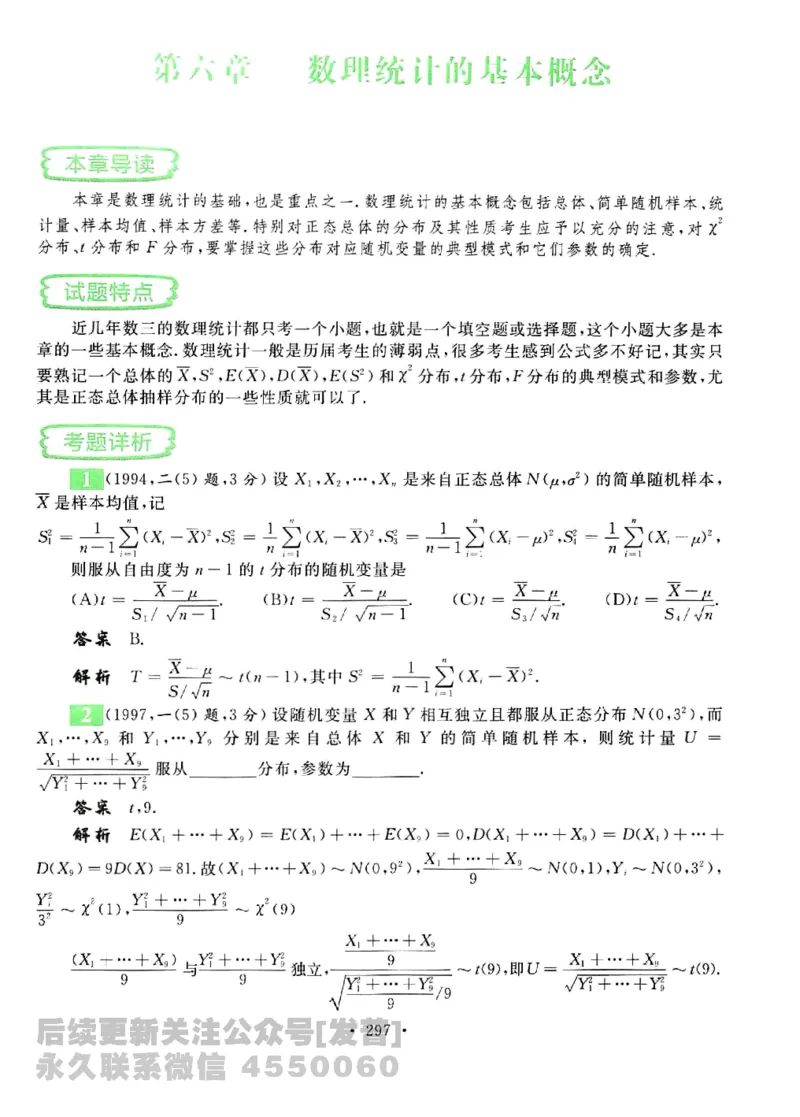 第六章 数理统计的基本概念
本章导读
本章是数理统计的基础,也是重点之一.数理统计的基本概念包括总体、简单随机样本、统
计量、样本均值、样本方差等.特别对正态总体的分布及其性质考生应予以充分的注意,对 χ²
分布、t 分布和 F 分布,要掌握这些分布对应随机变量的典型模式和它们参数的确定.
试题特点
近几年数三的数理统计都只考一个小题,也就是一个填空题或选择题,这个小题大多是本
章的一些基本概念.数理统计一般是历届考生的薄弱点,很多考生感到公式多不好记,其实只
要熟记一个总体的 X̄,S²,E(X̄),D(X̄),E(S²) 和 χ² 分布,t 分布,F 分布的典型模式和参数,尤
其是正态总体抽样分布的一些性质就可以了.
考题详析
1 (1994,二(5) 题,3 分) 设 X₁,X₂,⋯,Xₙ 是来自正态总体 N(μ,σ²) 的简单随机样本,
X̄ 是样本均值,记
S₁² = 1/(n−1) ∑ᵢ₌₁ⁿ (Xᵢ − X̄)², S₂² = 1/n ∑ᵢ₌₁ⁿ (Xᵢ − X̄)², S₃² = 1/(n−1) ∑ᵢ₌₁ⁿ (Xᵢ − μ)², S₄² = 1/n ∑ᵢ₌₁ⁿ (Xᵢ − μ)²,
则服从自由度为 n − 1 的 t 分布的随机变量是
(A) t = (X̄ − μ)/(S₁/√(n−1)). (B) t = (X̄ − μ)/(S₂/√(n−1)). (C) t = (X̄ − μ)/(S₃/√n). (D) t = (X̄ − μ)/(S₄/√n).
答案 B.
解析 T = (X̄ − μ)/(S/√n) ~ t(n − 1),其中 S² = 1/(n−1) ∑ᵢ₌₁ⁿ (Xᵢ − X̄)².
2 (1997,一(5) 题,3 分) 设随机变量 X 和 Y 相互独立且都服从正态分布 N(0,3²),而
X₁,⋯,X₉ 和 Y₁,⋯,Y₉ 分别是来自总体 X 和 Y 的简单随机样本, 则统计量 U =
(X₁ + ⋯ + X₉)/√(Y₁² + ⋯ + Y₉²) 服从______分布,参数为______.
答案 t,9.
解析 E(X₁ + ⋯ + X₉) = E(X₁) + ⋯ + E(X₉) = 0,D(X₁ + ⋯ + X₉) = D(X₁) + ⋯ +
D(X₉) = 9D(X) = 81.故(X₁ + ⋯ + X₉) ~ N(0,9²),(X₁ + ⋯ + X₉)/9 ~ N(0,1),Yᵢ ~ N(0,3²),
Yᵢ²/3² ~ χ²(1),(Y₁² + ⋯ + Y₉²)/9 ~ χ²(9)
(X₁ + ⋯ + X₉)/9 与 (Y₁² + ⋯ + Y₉²)/9 独立,((X₁ + ⋯ + X₉)/9)/√((Y₁² + ⋯ + Y₉²)/9/9) ~ t(9),即U = (X₁ + ⋯ + X₉)/√(Y₁² + ⋯ + Y₉²) ~ t(9).
· 297 ·
后续更新关注公众号[发普]
永久联系微信 4550060